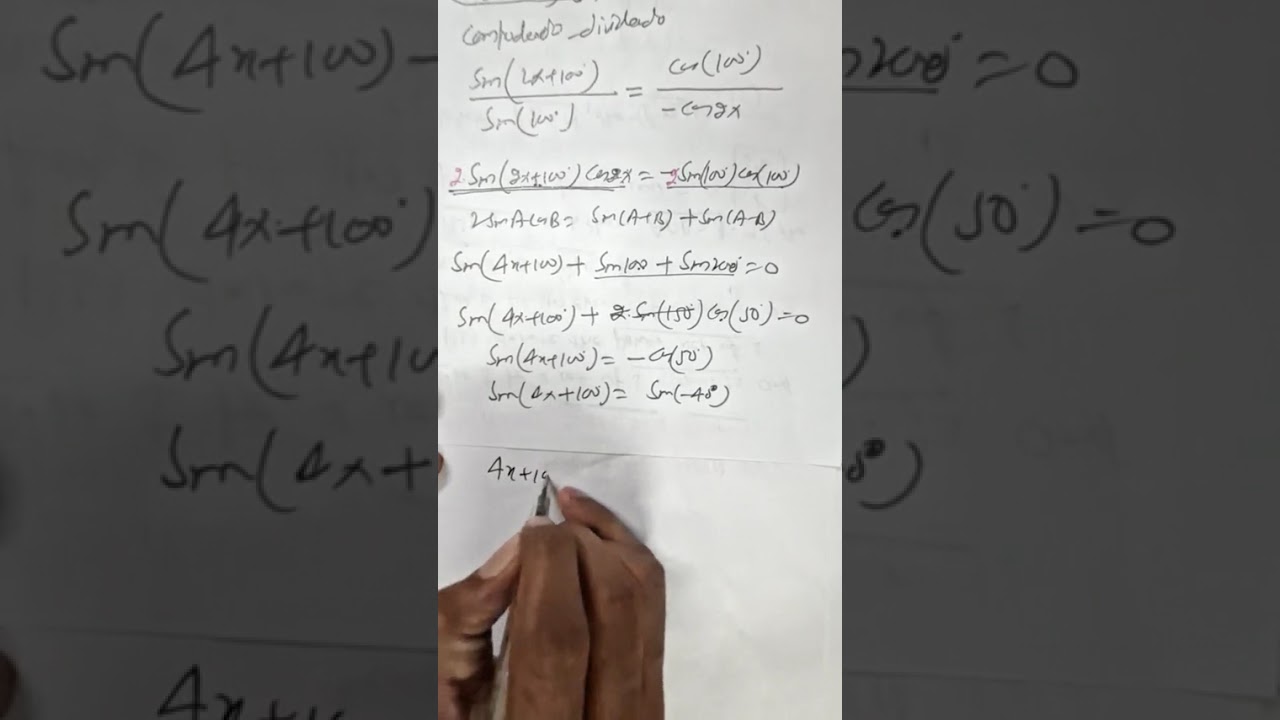 Componendo dividendo
Sin(2x+100°) / Sin(100°) = Cos(100°) / -Cos2x
2 Sin(2x+100°) Cos2x = -2 Sin(100°) Cos(100°)
2SinACosB = Sin(A+B) + Sin(A-B)
Sin(4x+100) + Sin100 + Sin200° = 0
Sin(4x+100°) + 2 Sin(150°) Cos(50°) = 0
Sin(4x+100°) = -Cos(50°)
Sin(4x+100) = Sin(-40°)
4x+10